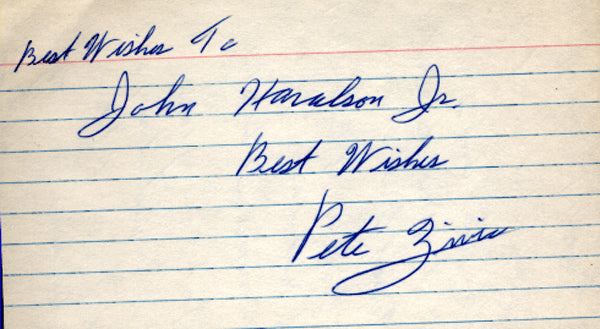 Best Wishes To
John Haralson Jr.
Best Wishes
Pete Zivic